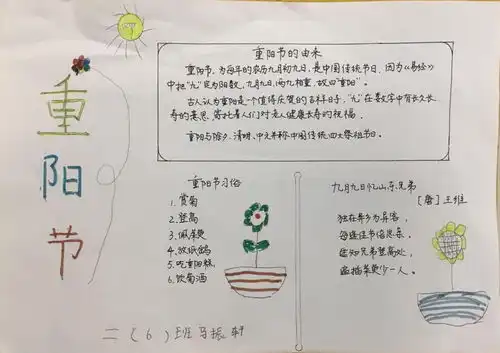 重阳节
重阳节的由来
重阳节，为每年的农历九月初九日，是中国传统节日。因为《易经》
中把“九”定为阳数，九月九日，两九相重，故曰“重阳”。
古人认为重阳是一个值得庆贺的吉祥日子，“九”在数字中有长久长
寿的意思，寄托着人们对老人健康长寿的祝福。
重阳与除夕、清明、中元并称中国传统四大祭祖节日。
重阳节习俗
1. 赏菊
2. 登高
3. 佩茱萸
4. 放纸鸢
5. 吃重阳糕
6. 饮菊酒
九月九日忆山东兄弟
[唐] 王维
独在异乡为异客，
每逢佳节倍思亲。
遥知兄弟登高处，
遍插茱萸少一人。
二（6）班 马振轩